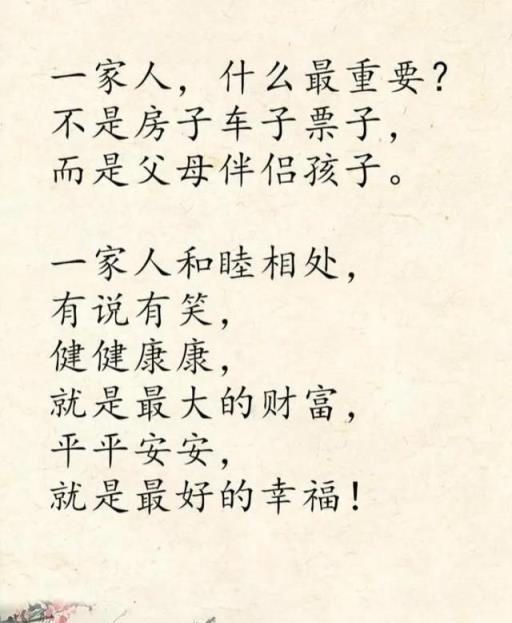 一家人，什么最重要？
不是房子车子票子，
而是父母伴侣孩子。
一家人和睦相处，
有说有笑，
健健康康，
就是最大的财富，
平平安安，
就是最好的幸福！